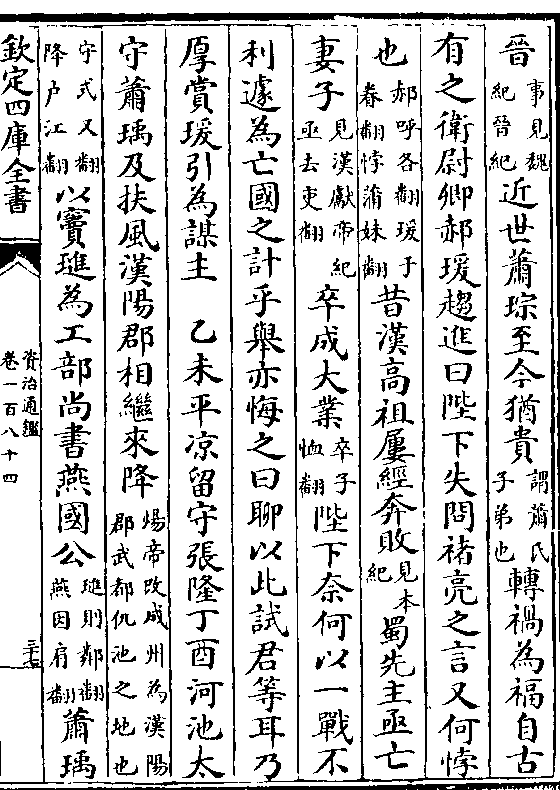 晉事見魏紀晉紀近世蕭琮至今猶貴謂蕭氏子弟也轉禍為福自古
有之衛尉卿郝瑗趨進曰陛下失問禇亮之言又何悖
也郝呼各翻瑗于眷翻悖蒲妹翻昔漢高祖屢經奔敗見本紀蜀先主亟亡
妻子見漢獻帝紀亟去吏翻卒成大業卒子恤翻陛下奈何以一戰不
利遽為亡國之計乎舉亦悔之曰聊以此試君等耳乃
厚賞瑗引為謀主 乙未平凉留守張隆丁酉河池太
守蕭瑀及扶風漢陽郡相繼來降煬帝改成州為漢陽郡武都仇池之地也
守式又翻降户江翻以竇璡為工部尚書燕國公璡則鄰翻燕因肩翻蕭瑀
欽定四庫全書
資治通鑑
卷一百八十四